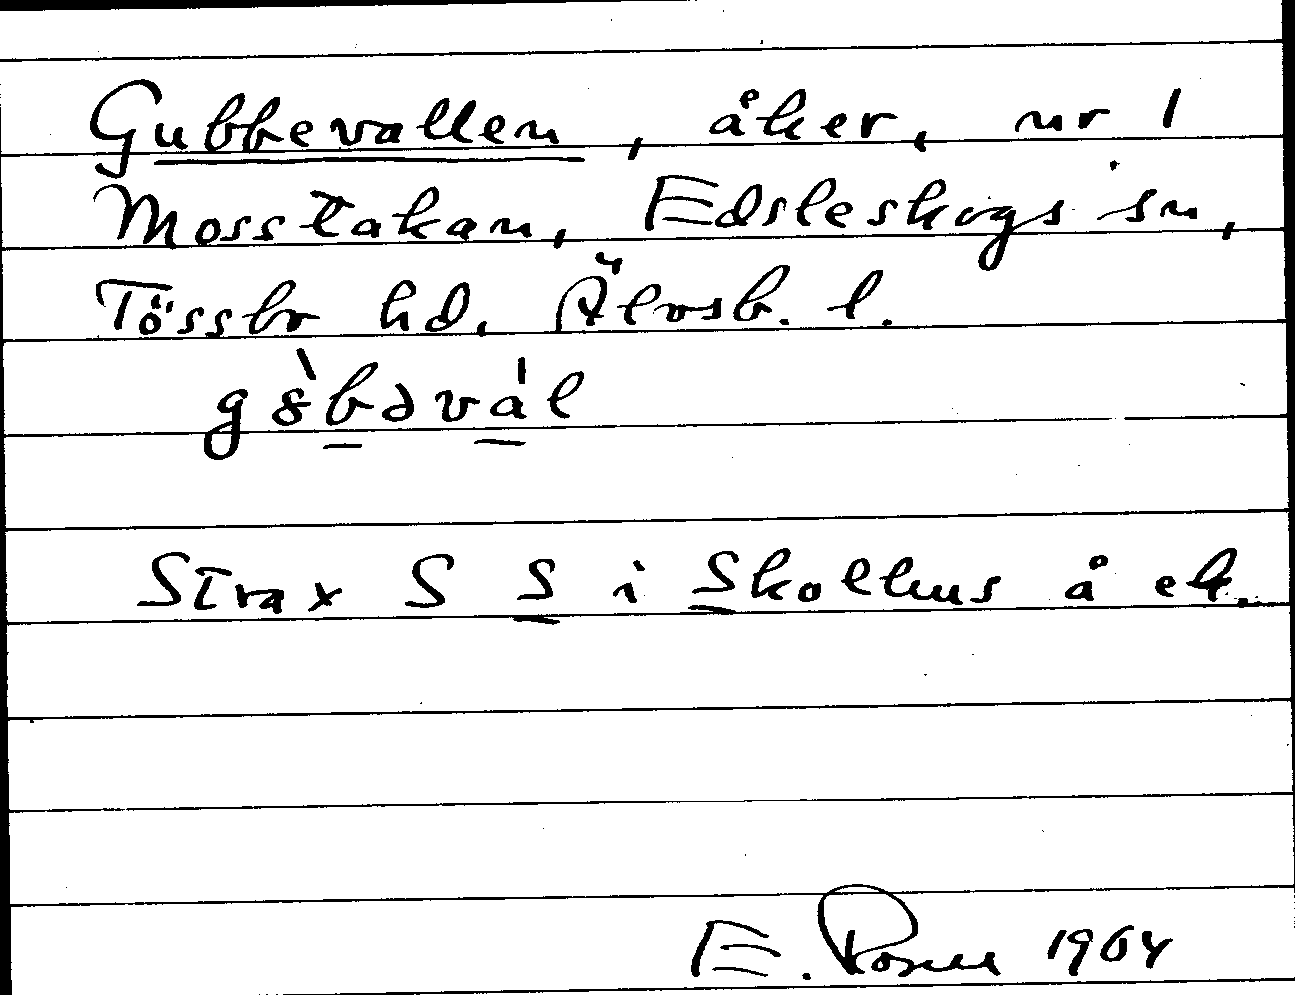 Gubbevallen, åker, nr 1
Mosstakan, Edsleskogs sn,
Tössbo hd. Älvsb. l.
g8̀bəvál
Strax S S i Skollhus å ek.
E. 1964